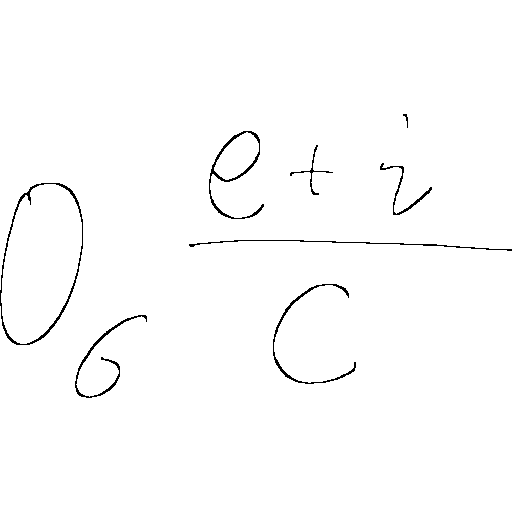 0_6 \frac{e+i}{c}